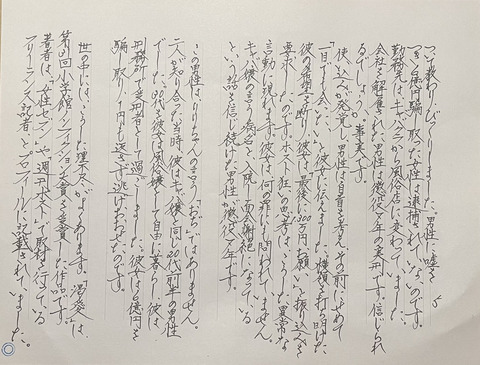 5
って教わり、びっくりしました。男性に嘘を
つき6億円騙し取った女性は逮捕されていないのです。
勤務先はキャバクラから風俗店に変わっていました。
会社を解雇された男性は懲役7年の実刑です。信じられ
るでしょうか。事実です。
使い込みが発覚し、男性は自首を考え、その前にせめて
一目でも会いたいと彼女に伝えました。横領を打ち明けた
彼の希望を断り、彼女は「最後に300万円お願い」と振り込みを
要求したのです。ホスト狂いの思考は、こうした異常な
言動に現れます。彼女は何の罪にも問われてません。
キャバ嬢の言う病名と入院し面会謝絶になっている
という話を信じ続けた男性が懲役7年です。
この男性は、りりちゃんの言う"おぢ"ではありません。
二人が知り合った当時、彼女はキャバ嬢、同じ20代前半の男性
でした。30代を彼女は風俗嬢として自由に暮らし、彼は
刑務所で受刑者として過ごしました。彼女は6億円を
騙し取り、1円も返さず逃げおおせたのです。
世の中にはこうした理不尽があります。『渇愛』は
第31回小学館ノンフィクション大賞を受賞した作品です。
著者は、「女性セブン」や「週刊ポスト」で取材を行っている
フリーランス記者、とプロフィールに記載されていました。